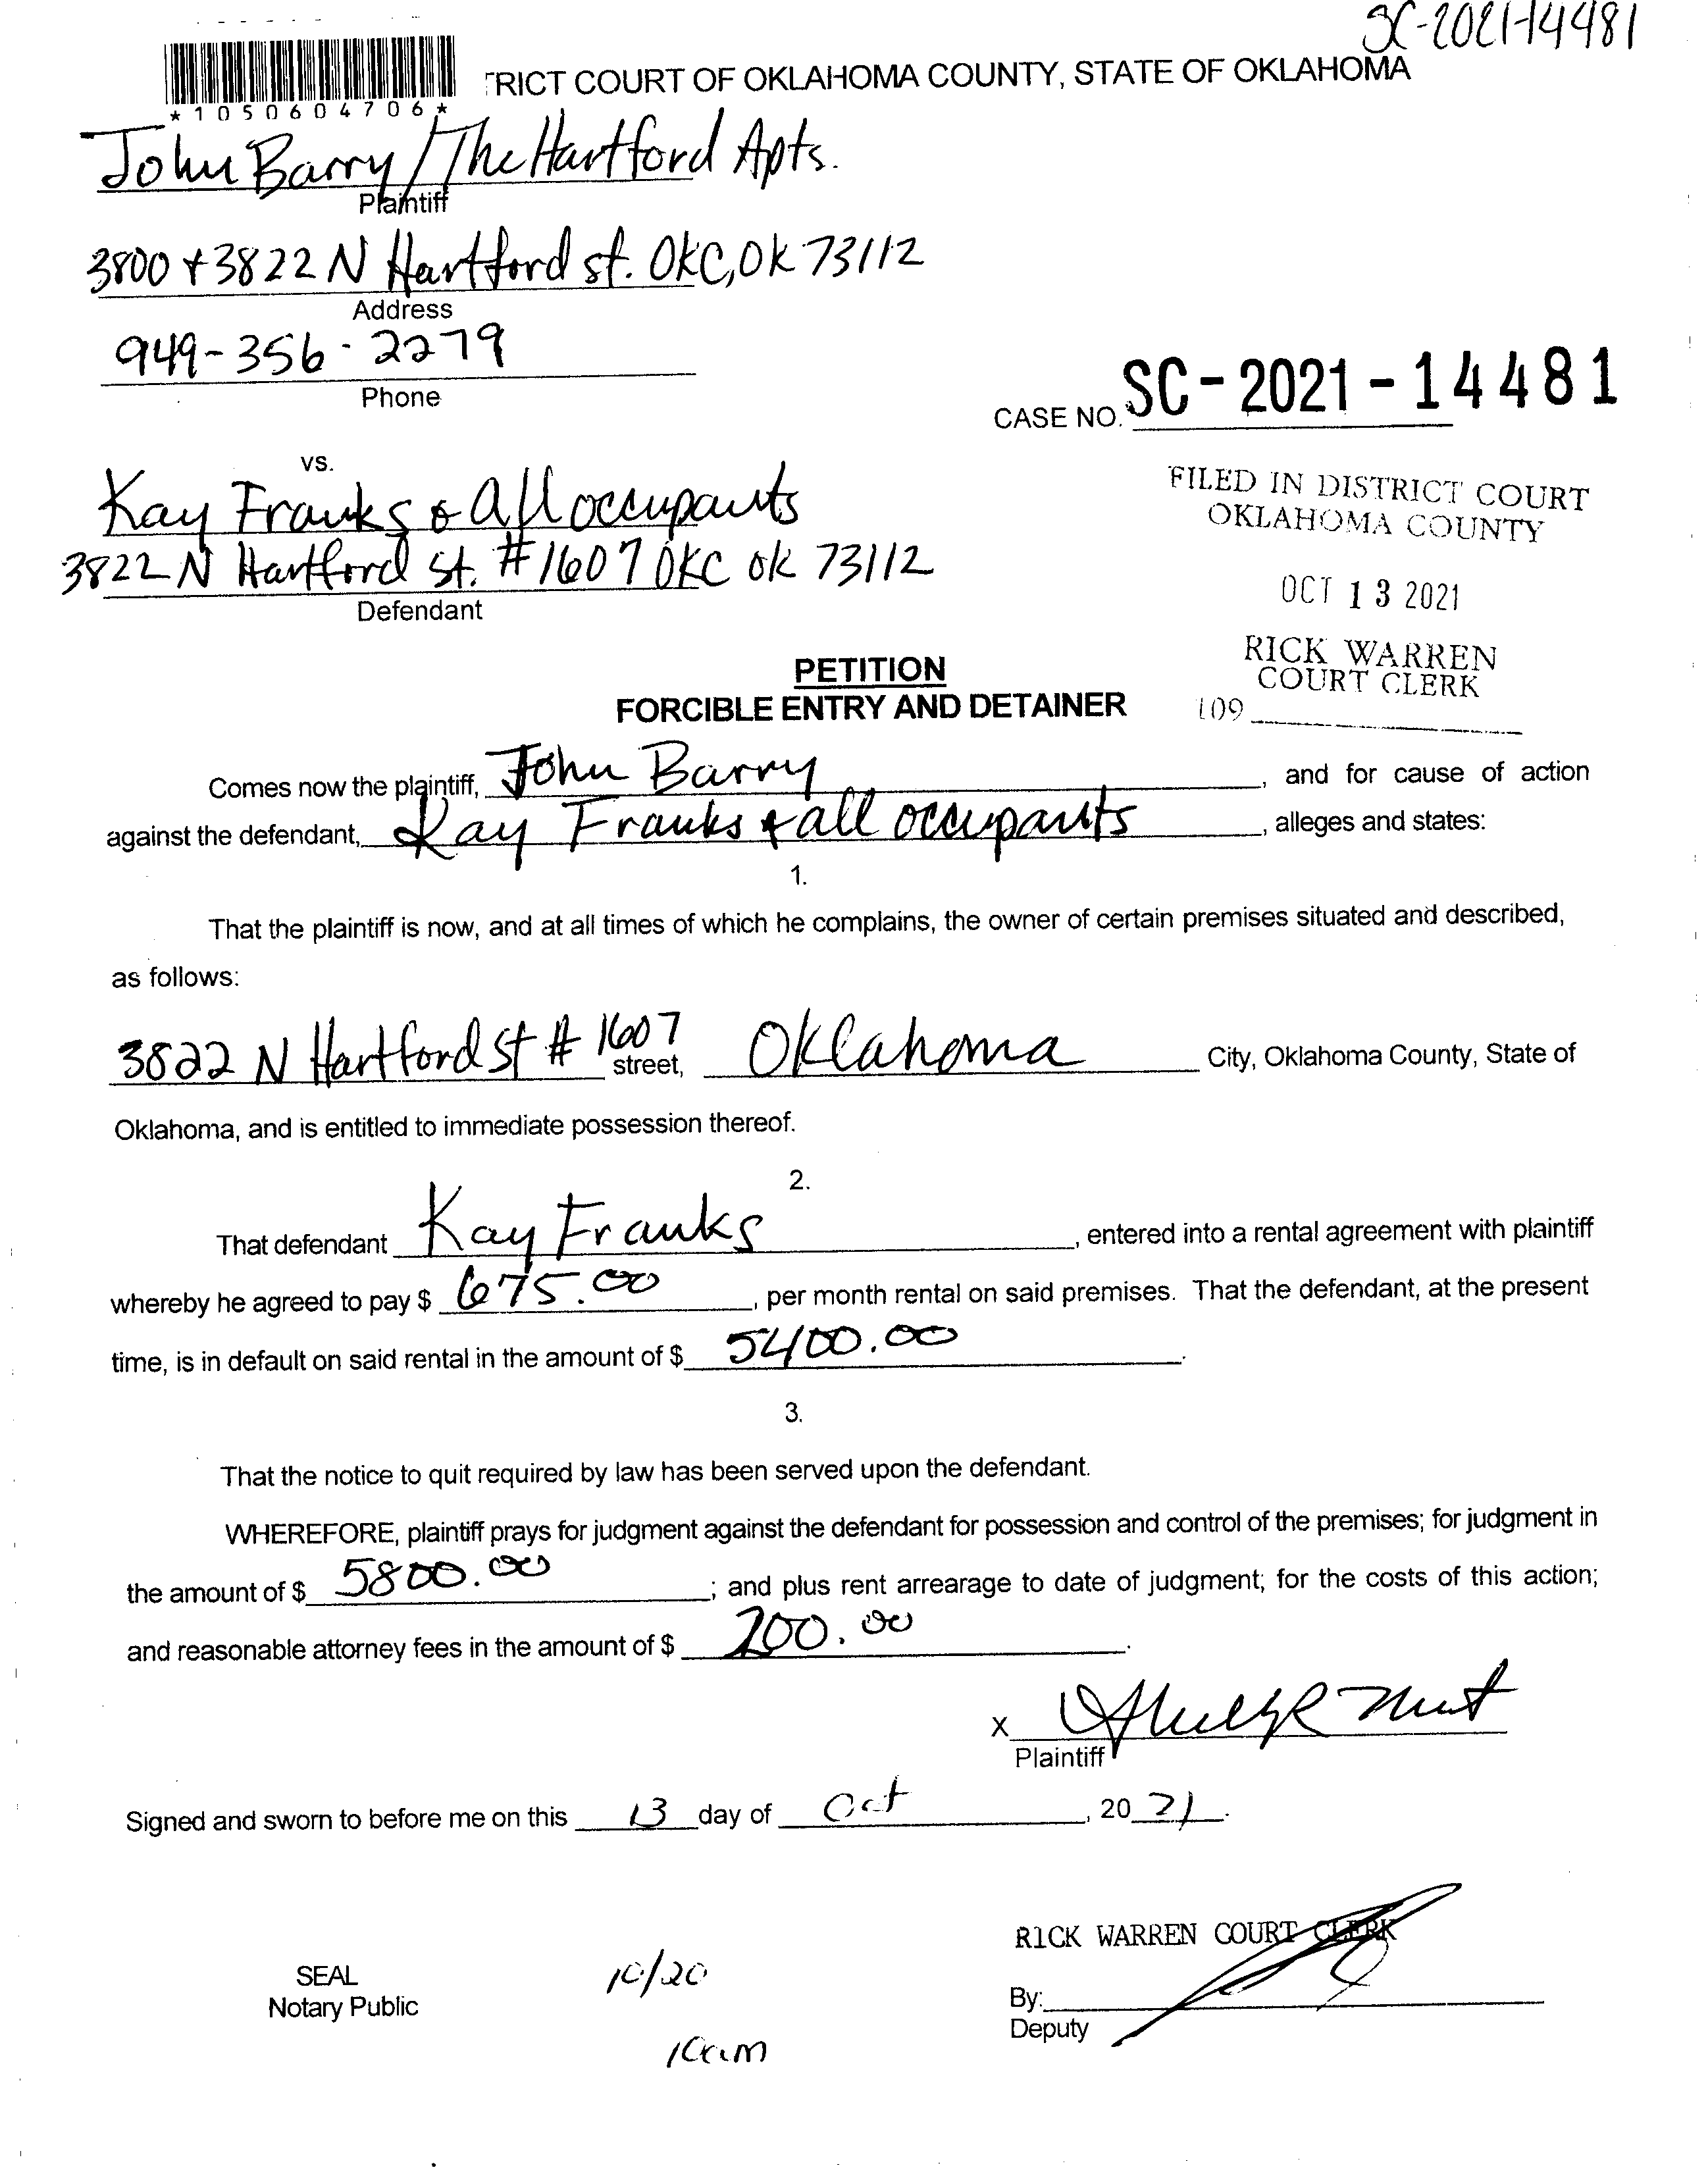 SC-2021-14481
TRICT COURT OF OKLAHOMA COUNTY, STATE OF OKLAHOMA
*1050604706*
John Barry/The Hartford Apts.
Plaintiff
3800 + 3822 N Hartford st. OKC, Ok 73112
Address
949-356-2279
Phone
CASE NO. SC-2021-14481
vs.
Kay Franks & All occupants
3822 N Hartford St. #1607 OKC ok 73112
Defendant
FILED IN DISTRICT COURT
OKLAHOMA COUNTY
OCT 13 2021
RICK WARREN
COURT CLERK
109
PETITION
FORCIBLE ENTRY AND DETAINER
Comes now the plaintiff, John Barry, and for cause of action
against the defendant, Kay Franks & all occupants, alleges and states:
1.
That the plaintiff is now, and at all times of which he complains, the owner of certain premises situated and described,
as follows:
3822 N Hartford St # 1607 street, Oklahoma City, Oklahoma County, State of
Oklahoma, and is entitled to immediate possession thereof.
2.
That defendant Kay Franks, entered into a rental agreement with plaintiff
whereby he agreed to pay $ 675.00, per month rental on said premises. That the defendant, at the present
time, is in default on said rental in the amount of $ 5400.00.
3.
That the notice to quit required by law has been served upon the defendant.
WHEREFORE, plaintiff prays for judgment against the defendant for possession and control of the premises; for judgment in
the amount of $ 5800.00; and plus rent arrearage to date of judgment; for the costs of this action;
and reasonable attorney fees in the amount of $ 200.00.
X
Plaintiff
Signed and sworn to before me on this 13 day of Oct, 20 21.
RICK WARREN COURT CLERK
SEAL
Notary Public
10/20
10am
By:
Deputy